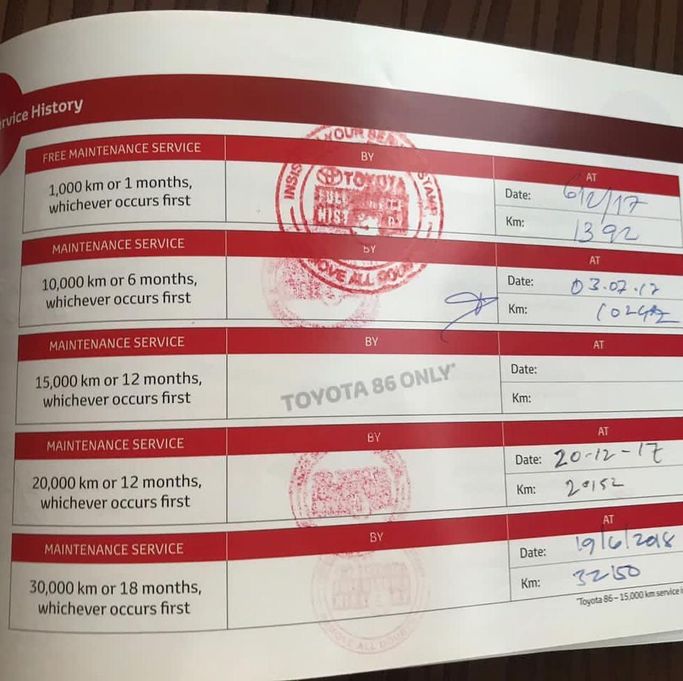 Service History
FREE MAINTENANCE SERVICE BY AT
1,000 km or 1 months,
whichever occurs first
YOUR
INSIS STAMP
TOYOTA
FULL
HIST
OVE ALL DOUB
Date: 6/2/17
Km: 1392
MAINTENANCE SERVICE BY AT
10,000 km or 6 months,
whichever occurs first
Date: 03.07.17
Km: 10247
MAINTENANCE SERVICE BY AT
15,000 km or 12 months,
whichever occurs first
TOYOTA 86 ONLY*
Date:
Km:
MAINTENANCE SERVICE BY AT
20,000 km or 12 months,
whichever occurs first
Date: 20-12-17
Km: 20152
MAINTENANCE SERVICE BY AT
30,000 km or 18 months,
whichever occurs first
ALL DOUB
Date: 19/6/2018
Km: 32150
*Toyota 86 – 15,000 km service i